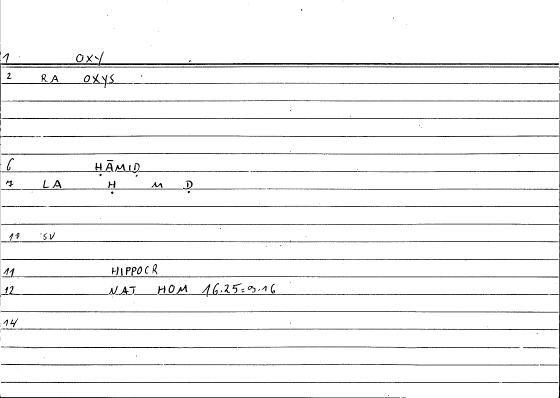 1 OXY
2 RA OXYS
6 ḤĀMIḌ
7 LA Ḥ M Ḍ
SV
11 HIPPOCR
12 NAT HOM 16.25=9.16
14